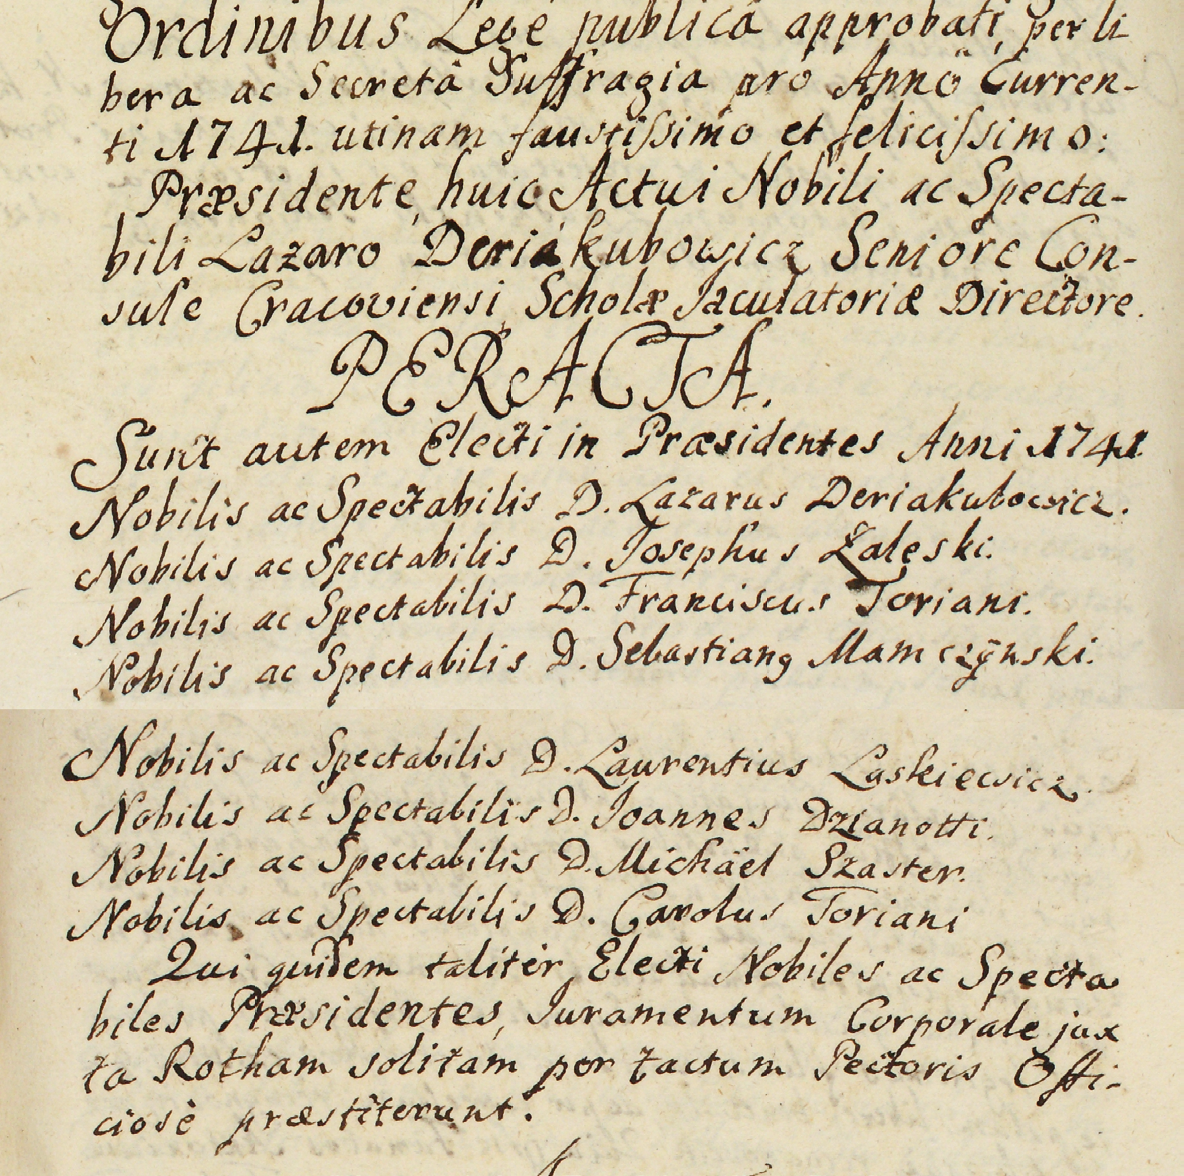 Ordinibus Lege publicâ approbati, per li
bera ac Secretâ Suffragia pro Annö Curren-
ti 1741. utinam faustiſsimo et feliciſsimo:
Præsidente huic Actui Nobili ac Specta-
bili Lazaro Deriakubowicz Seniore Con-
sule Cracoviensi Scholæ Jaculatoriæ Directore.
PERACTA.
Sunt autem Electi in Præsidentes Anni 1741
Nobilis ac Spectabilis D. Lazarus Deriakubowicz.
Nobilis ac Spectabilis D. Josephus Zaleski.
Nobilis ac Spectabilis D. Franciscus Toriani.
Nobilis ac Spectabilis D. Sebastianꝯ Mamczÿnski.
Nobilis ac Spectabilis D. Laurentius Laskiewicz.
Nobilis ac Spectabilis D. Joannes Dzianotti.
Nobilis ac Spectabilis D. Michäel Szaster.
Nobilis ac Spectabilis D. Carolus Toriani
Qui quidem taliter Electi Nobiles ac Specta
biles Præsidentes, Juramentum Corporale jux
ta Rotham solitam per tactum Pectoris Offi-
ciosè præstiterunt.